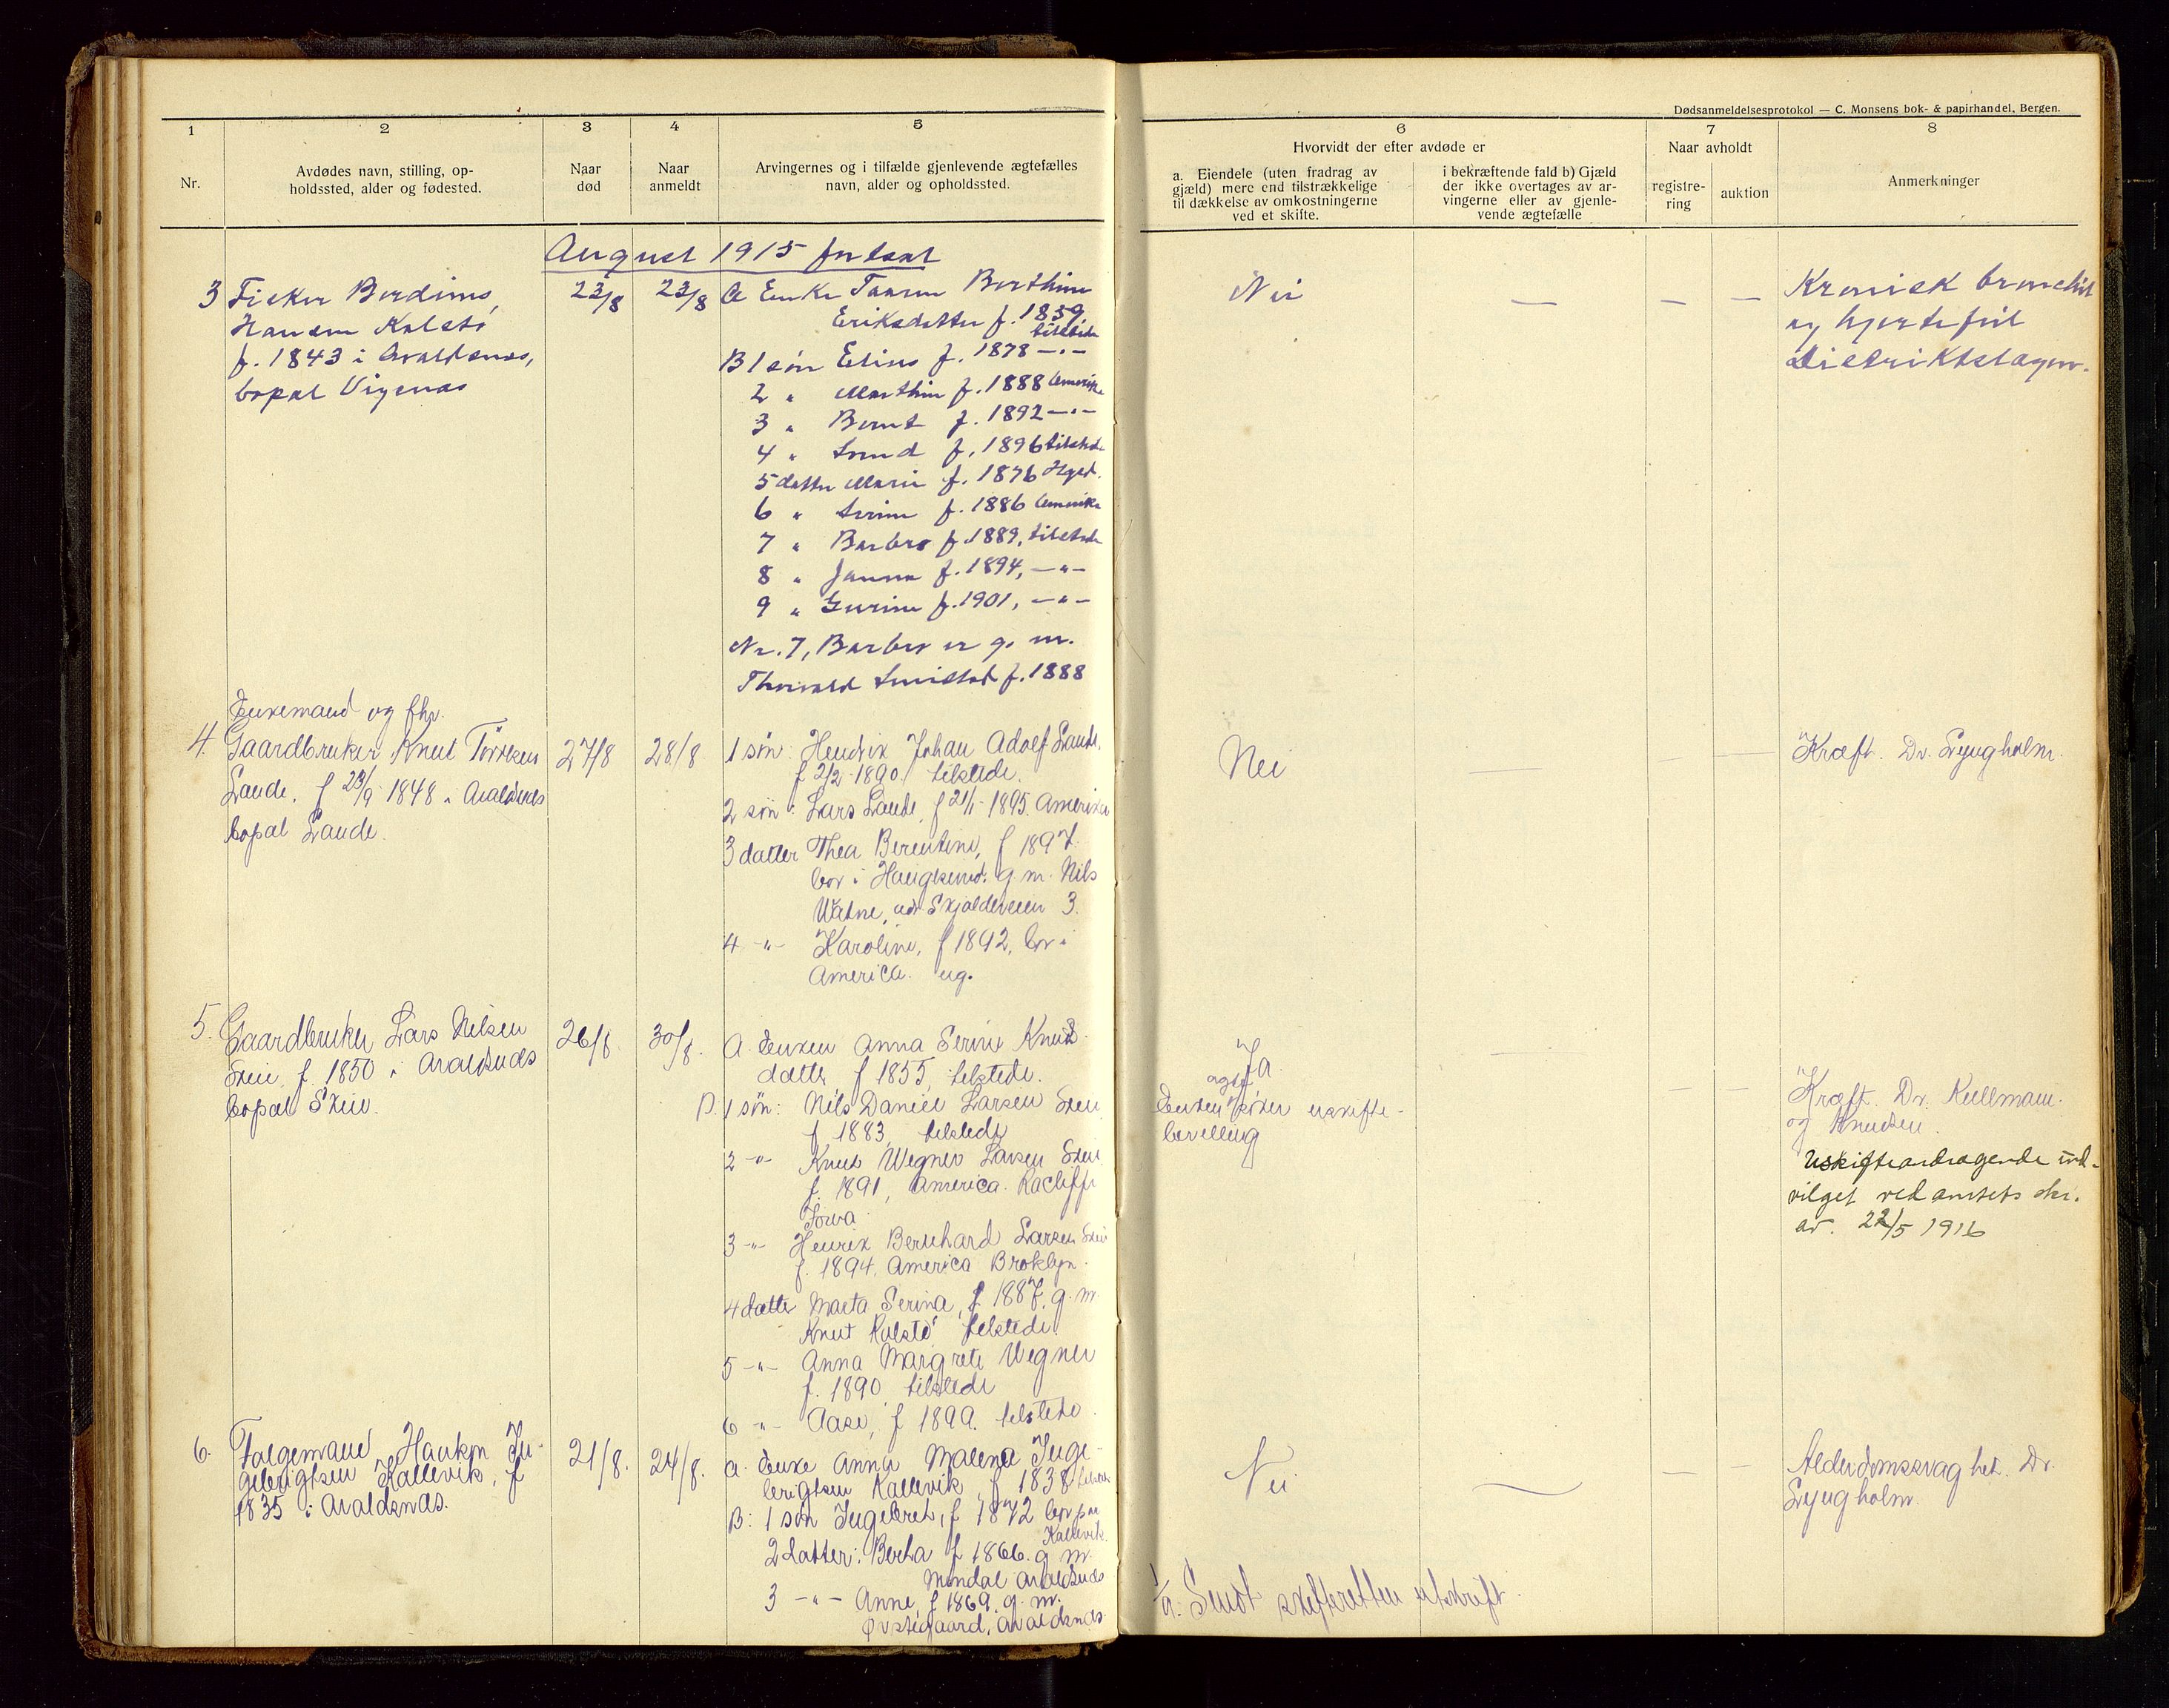 Dødsanmeldelsesprotokol — C. Monsens bok- & papirhandel, Bergen.
1 2 3 4 5 6 7 8
Nr.
Avdødes navn, stilling, op-
holdssted, alder og fødested.
Naar
død
Naar
anmeldt
Arvingernes og i tilfælde gjenlevende ægtefælles
navn, alder og opholdssted.
Hvorvidt der efter avdøde er
a. Eiendele (uten fradrag av
gjæld) mere end tilstrækkelige
til dækkelse av omkostningerne
ved et skifte.
i bekræftende fald b) Gjæld
der ikke overtages av ar-
vingerne eller av gjenle-
vende ægtefælle
Naar avholdt
registre-
ring
auktion
Anmerkninger
August 1915 fortsat
3 Fisker Berdinus
Hansen Kalstø
f. 1843 i Avaldsnes,
bopæl Vigenæs
23/8 23/8
A Enke Taarin Berthine
Eriksdatter f. 1859
tilstede
B 1 søn Elius f. 1878 -"-
2 " Marthin f. 1888 Amerika
3 " Bernt f. 1892 -"-
4 " f. 1896 tilstede
5 datter Marie f. 1876 Hgsd.
6 " f. 1886 Amerika
7 " Barbro f. 1889, tilstede
8 " Janna f. 1894, -"-
9 " Gurine f. 1901, -"-
Nr. 7, Barbro er g. m.
Thorvald f. 1888
Nei — — —
Kronisk bronchit
og hjertefeil
Distriktslægen.
Enkemand og fhv.
4. Gaardbruker Knut Tørresen
Lande, f 23/9 1848 i Avaldsnes
bopæl Lande.
27/8 28/8
1 søn: Hendrik Johan Adolf Lande,
f 2/2 1890. tilstede.
2 søn: Lars Lande, f 21/1 1895. Amerika
3 datter Thea Berentine, f 1897.
bor i Haugesund. g. m. Nils
Watne, adr Skjoldeveien 3.
4 -"- Karoline, f 1892, bor i
America. ug.
Nei — — —
Kræft. Dr. Lyngholm.
5. Gaardbruker Lars Nilsen
Skeie, f. 1850 i Avaldsnes
bopæl Skeie.
26/8 30/8.
A. Enken Anna Serine Knuds-
datter f 1855, tilstede.
B. 1 søn: Nils Daniel Larsen Skeie
f 1883, tilstede
2 -"- Knut Wegner Larsen Skeie
f. 1891, America. Racliffe
Iowa
3 -"- Henrik Bernhard Larsen Skeie
f. 1894. America Broklyn.
4 datter Marta Serina, f. 1887, g. m.
Knut Kalstø tilstede.
5 -"- Anna Margrete Wegner
f. 1890 tilstede
6 -"- Aase, f 1899. tilstede.
Ja
agter
Enken søker uskifte-
bevilling
— — —
Kræft. Dr. Kullmann.
og Knudsen.
Uskifteandragende ind-
vilget ved amtets skr.
av. 22/5 1916
6. Folgemand Haakon In-
gebrigtsen Kallevik, f
1835 i Avaldsnes.
21/8. 24/8.
A. Enke Anna Malena Inge-
brigtsen Kallevik f 1838 tilstede
B: 1 søn Ingebret, f 1872 bor paa
Kallevik.
2 datter: Berta f 1866. g m.
Mondal Avaldsnes
3 -"- Anne, f 1869. g. m.
Øvstegaard, Avaldsnes.
Nei. — — —
Alderdomssvaghet. Dr.
Lyngholm.
1/9. Sendt skifteretten utskrift.